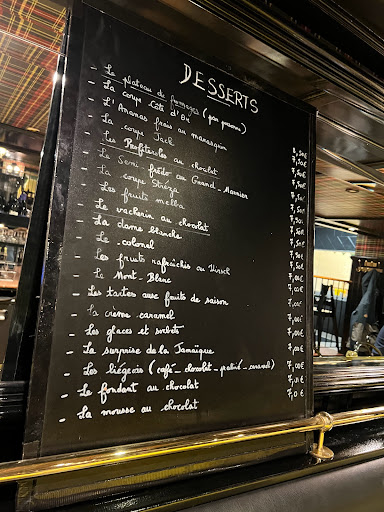 DESSERTS
- Le plateau de fromages (par personne) 8,50€
- La coupe Côte d'Or 7,50€
- L'Ananas frais au marasquin 7,50€
- La coupe Jack 7,50€
- Les Profiteroles au chocolat 7,50€
- Le Semi-fredo au Grand-Marnier 7,50€
- La coupe Stréza 7,50€
- Les fruits melba 7,50€
- Le vacherin au chocolat 7,50€
- La dame blanche 7,50€
- Le colonel 7,50€
- Les fruits rafraîchis au Kirsch 7,50€
- Le Mont-Blanc 7,00€
- Les tartes aux fruits de saison 7,00€
- La crème caramel 7,00€
- Les glaces et sorbets 7,00€
- La surprise de la Jamaïque 7,00€
- Les liégeois (café - chocolat - praliné - caramel) 7,00€
- Le fondant au chocolat 7,00€
- La mousse au chocolat 7,00€